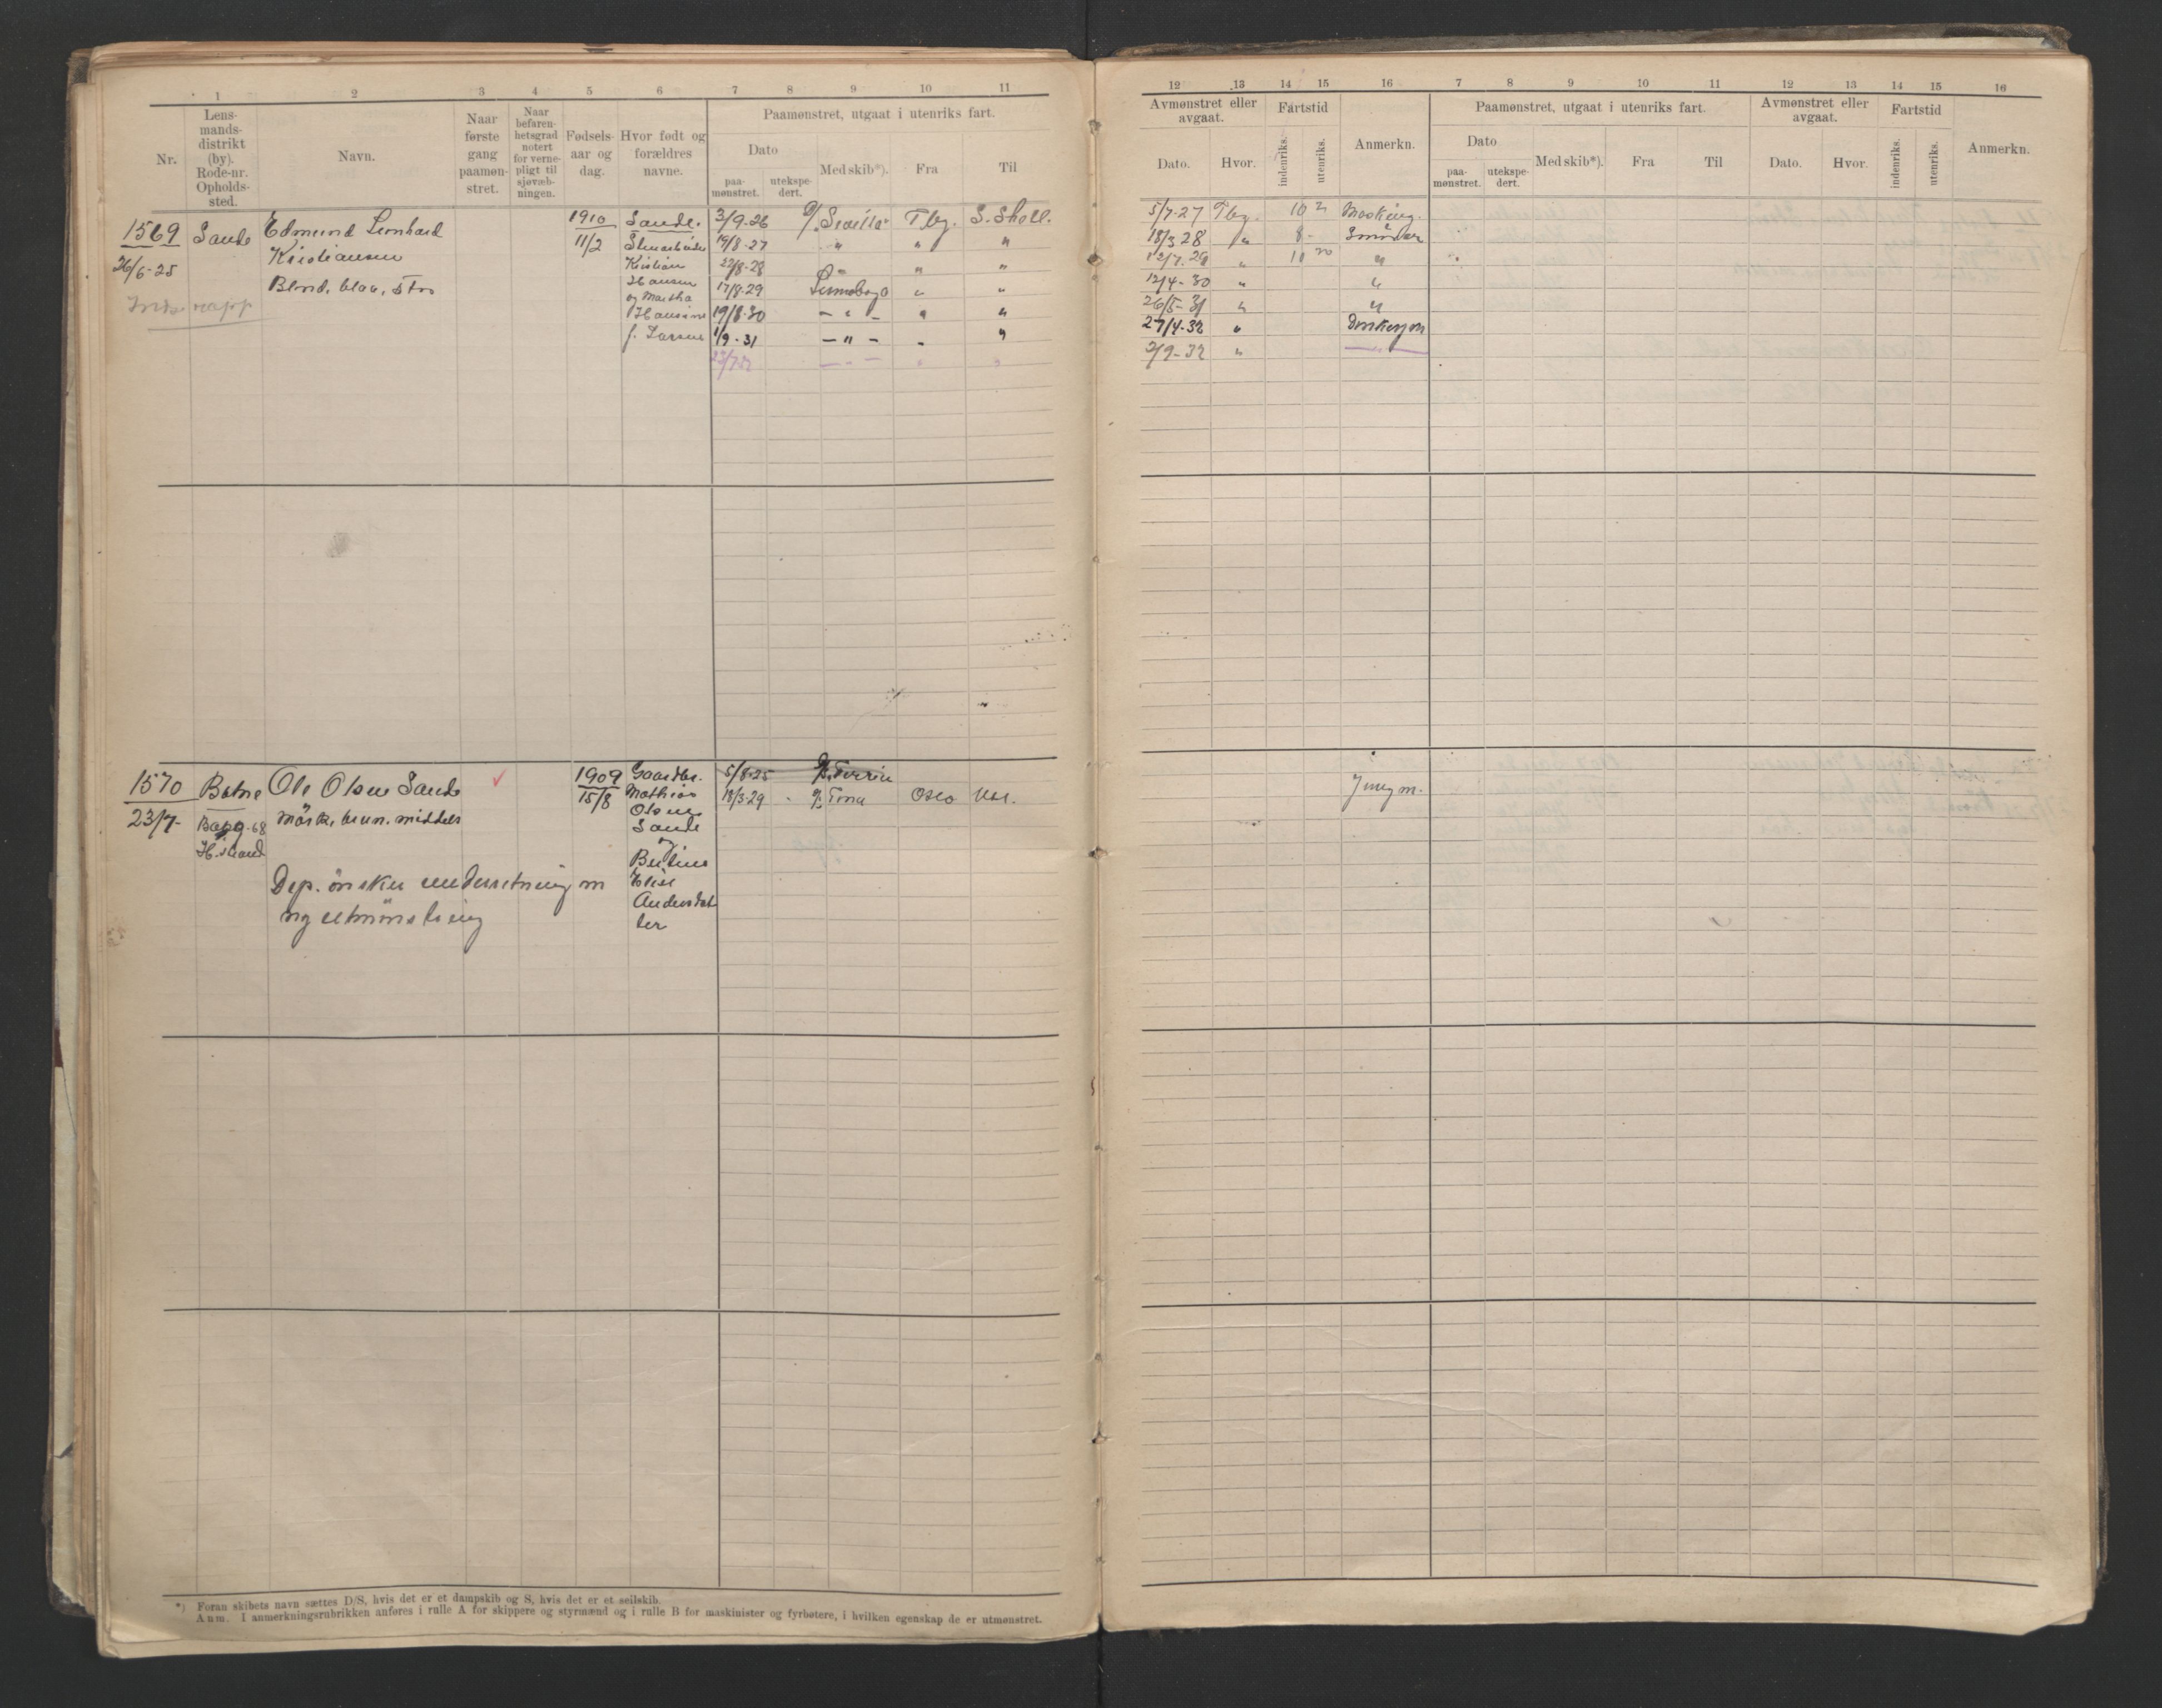 1 2 3 4 5 6 7 8 9 10 11
Nr.
Lens-
mands-
distrikt
(by).
Rode-nr.
Opholds-
sted.
Navn.
Naar
første
gang
paamøn-
stret.
Naar
befaren-
hetsgrad
notert
for verne-
pligt til
sjøvæb-
ningen.
Fødsels-
aar og
dag.
Hvor født og
forældres
navne.
Paamønstret, utgaat i utenriks fart.
Dato
paa-
mønstret.
utekspe-
dert.
Med skib*).
Fra
Til
1569
26/6-25
Sande
Edmund Leonhard
Kristiansen
Blond, blaa, stor
1910
11/2
Sande.
Kristian
Hansen
og Martha
Hansine
f. Larsen
3/9-26 Tbg. S. Shetl.
19/8-27 " " "
22/8-28 " " "
17/8-29 " "
19/8-30 - " - " "
1/9-31 - " - " "
23/7-32 - " - " "
1570
23/7-
Botne
H.strand
Ole Olsen Sande
mörk, brun, middels
Dep. önsker underretning m
ny utmönstring
✓
1909
15/8
Gaardbr.
Mathias
Olsen
Sande
og
Elise
Andersdat
ter
5/8-25
18/3-29 Oslo
*) Foran skibets navn sættes D/S, hvis det er et dampskib og S, hvis det er et seilskib.
Anm. I anmerkningsrubrikken anføres i rulle A for skippere og styrmænd og i rulle B for maskinister og fyrbøtere, i hvilken egenskap de er utmønstret.
12 13 14 15 16 7 8 9 10 11 12 13 14 15 16
Avmønstret eller
avgaat.
Dato.
Hvor.
Fartstid
indenriks.
utenriks.
Anmerkn.
Paamønstret, utgaat i utenriks fart.
Dato
paa-
mønstret.
utekspe-
dert.
Med skib*).
Fra
Til
Avmønstret eller
avgaat.
Dato.
Hvor.
Fartstid
indenriks.
utenriks.
Anmerkn.
5/7-27 Tbg. 10 2
18/3 28 " 8 -
12/7.29 " 11 20 "
12/4-30 " "
26/5-31 " "
27/4-32 "
2/9-32 " - " -
Jungm.